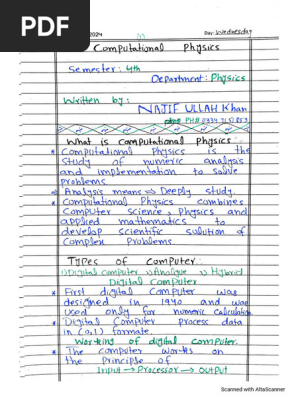 PDF
2024 Day: Wednesday
Computational Physics
Semester: 4th
Department: Physics
Written by:
NAJIF ULLAH Khan
What is Computational Physics
* Computational Physics is the
study of numeric analysis
and implementation to solve
problems.
Analysis means => Deeply study.
* Computational Physics combines
Computer Science, Physics and
applied mathematics to
develop scientific solution of
Complex Problems.
Types of Computer:
Digital Computer Analogue Hybrid
Digital Computer
* First digital Computer was
designed in 1940 and was
used only for numeric Calculation
* Digital Computer process data
in (0,1) formate.
Working of digital computer.
* The computer works on
the Principle of
Input → Processor → output
Scanned with AltaScanner